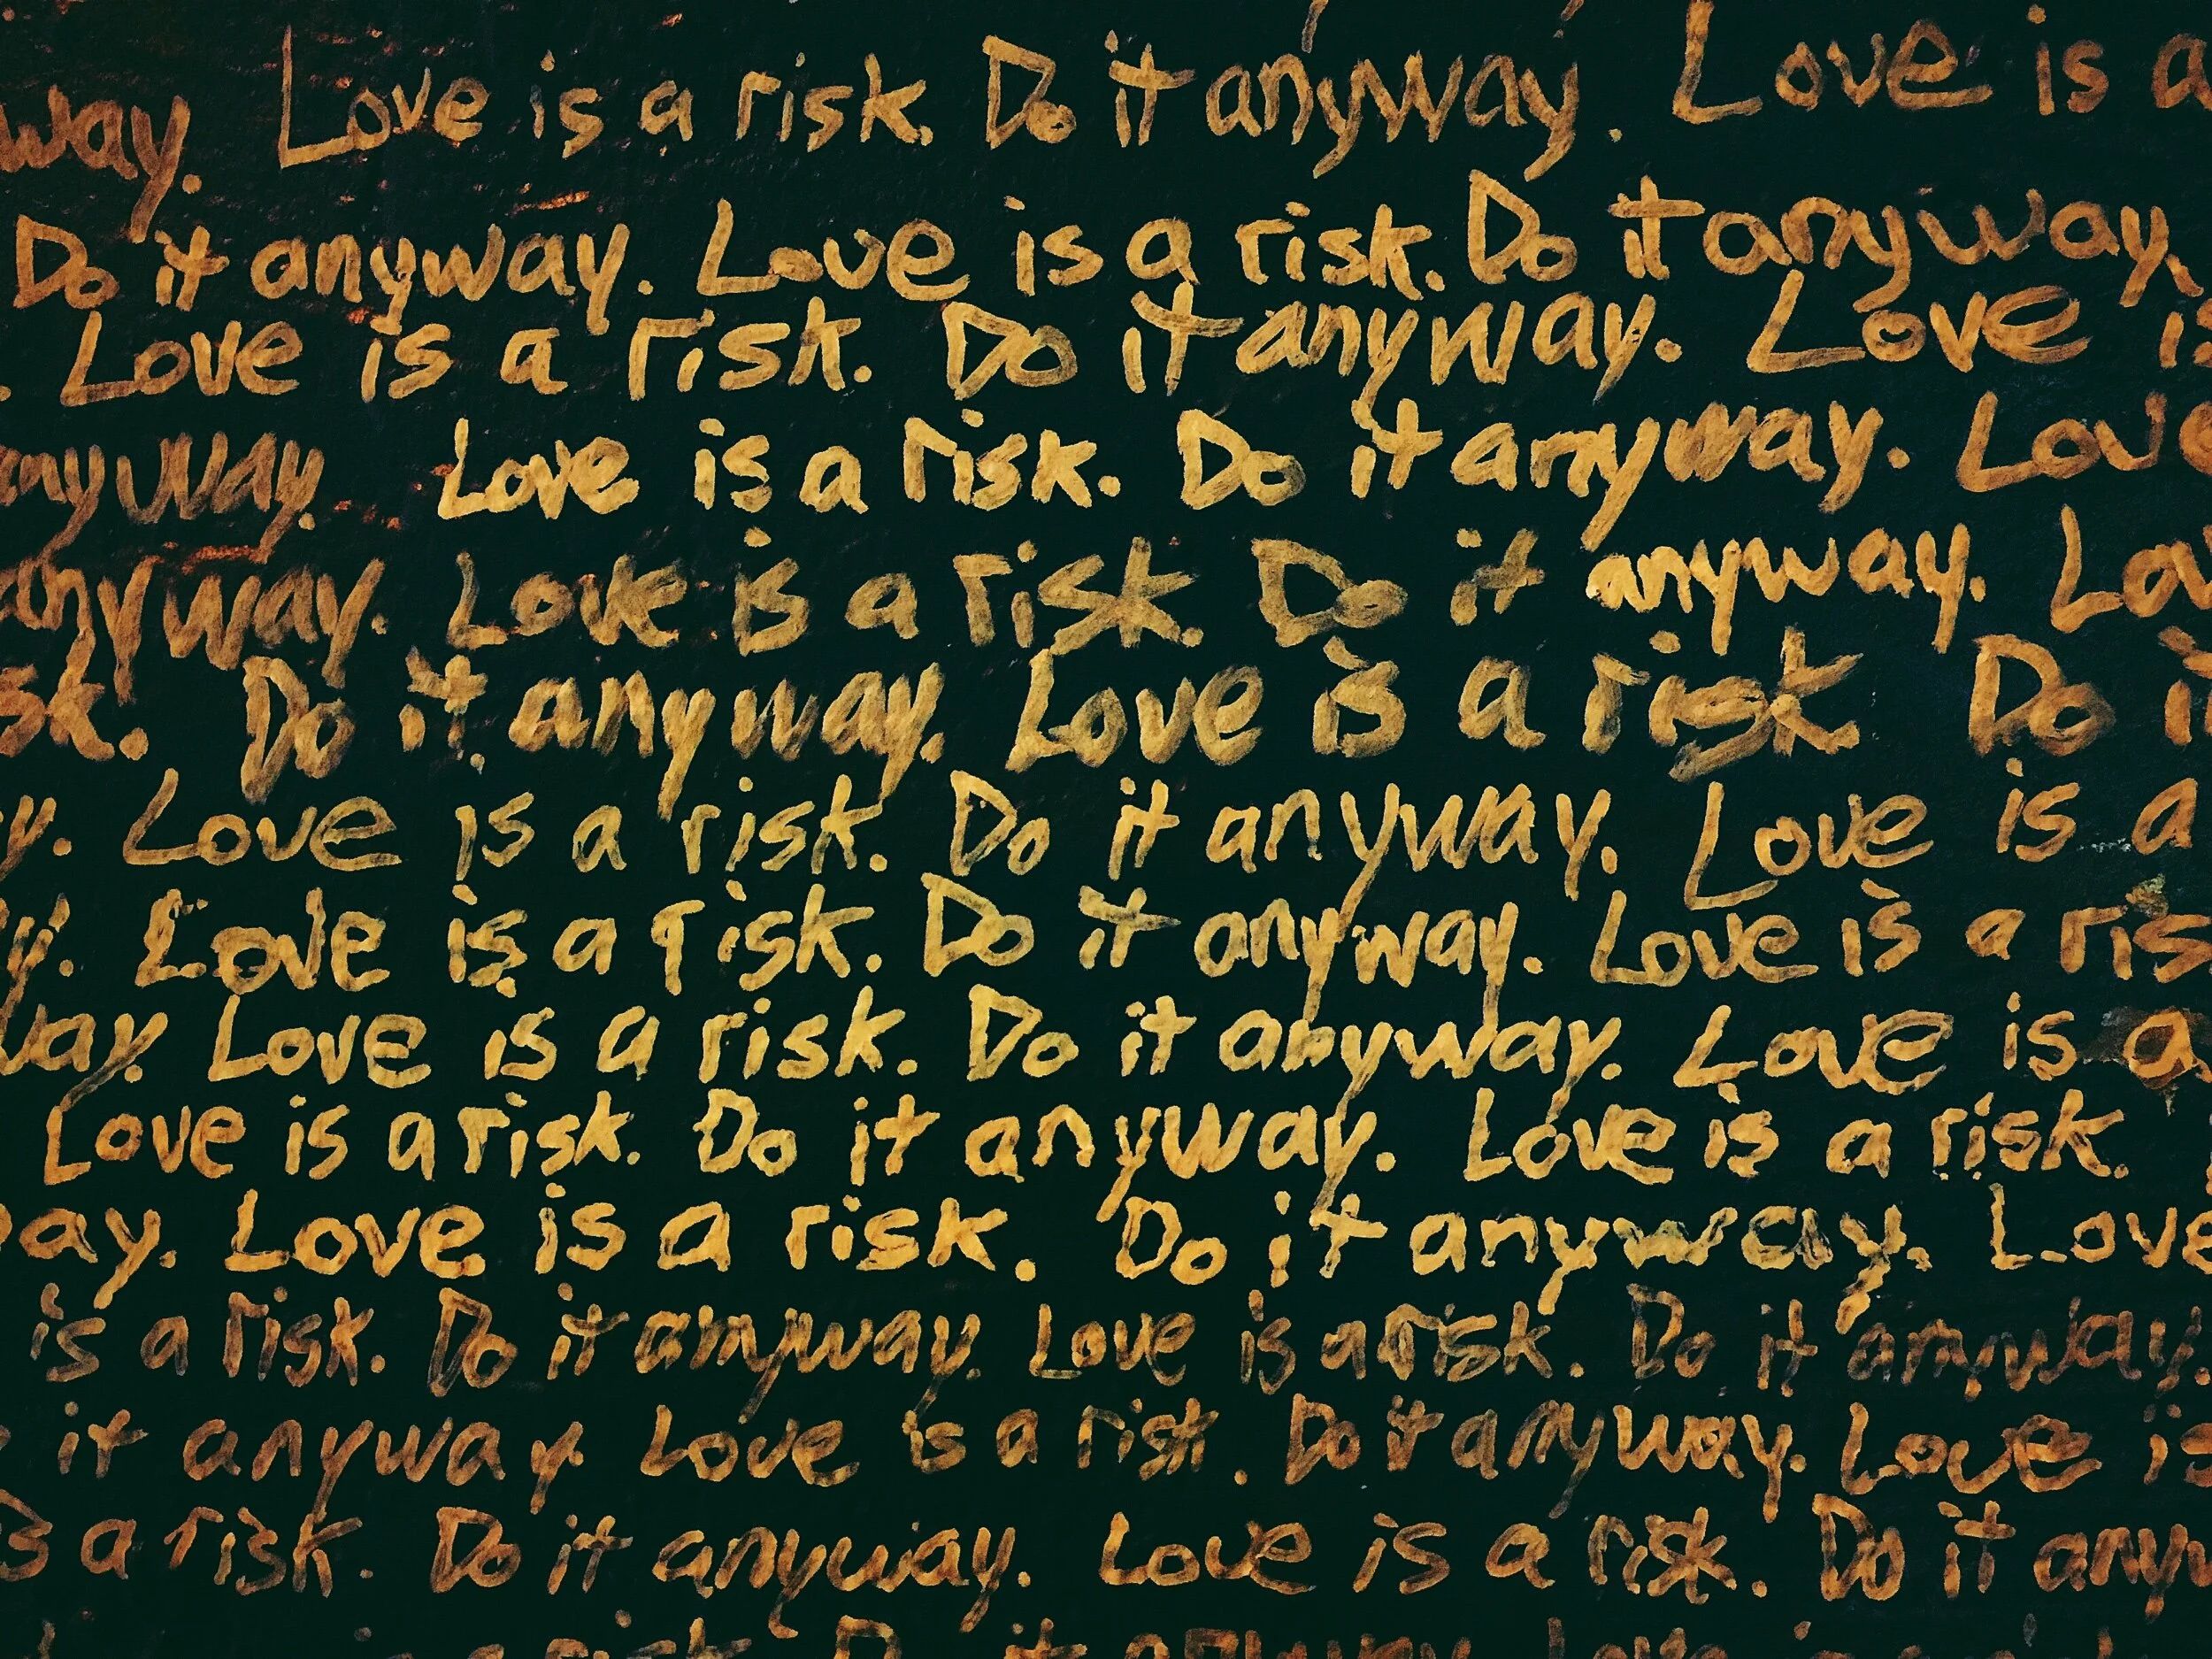 way. Love is a risk. Do it anyway. Love is a
Do it anyway. Love is a risk. Do it anyway.
. Love is a risk. Do it anyway. Love is
anyway. Love is a risk. Do it anyway. Love
anyway. Love is a risk. Do it anyway. Lov
sk. Do it anyway. Love is a risk Do it
y. Love is a risk. Do it anyway. Love is a
y. Love is a risk. Do it anyway. Love is a ris
way. Love is a risk. Do it anyway. Love is a
Love is a risk. Do it anyway. Love is a risk.
ay. Love is a risk. Do it anyway. Love
is a risk. Do it anyway. Love is a risk. Do it anyway.
it anyway Love is a risk. Do it anyway. Love is
is a risk. Do it anyway. Love is a risk. Do it anyw